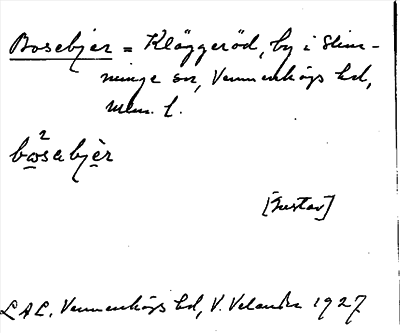 Bosebjer = Kläggeröd, by i Slim-
minge sn, Vemmenhögs hd,
Mlm. l.
bω²sabjèr
[Gustav]
LAL, Vemmenhögs hd, V. Velander 1927